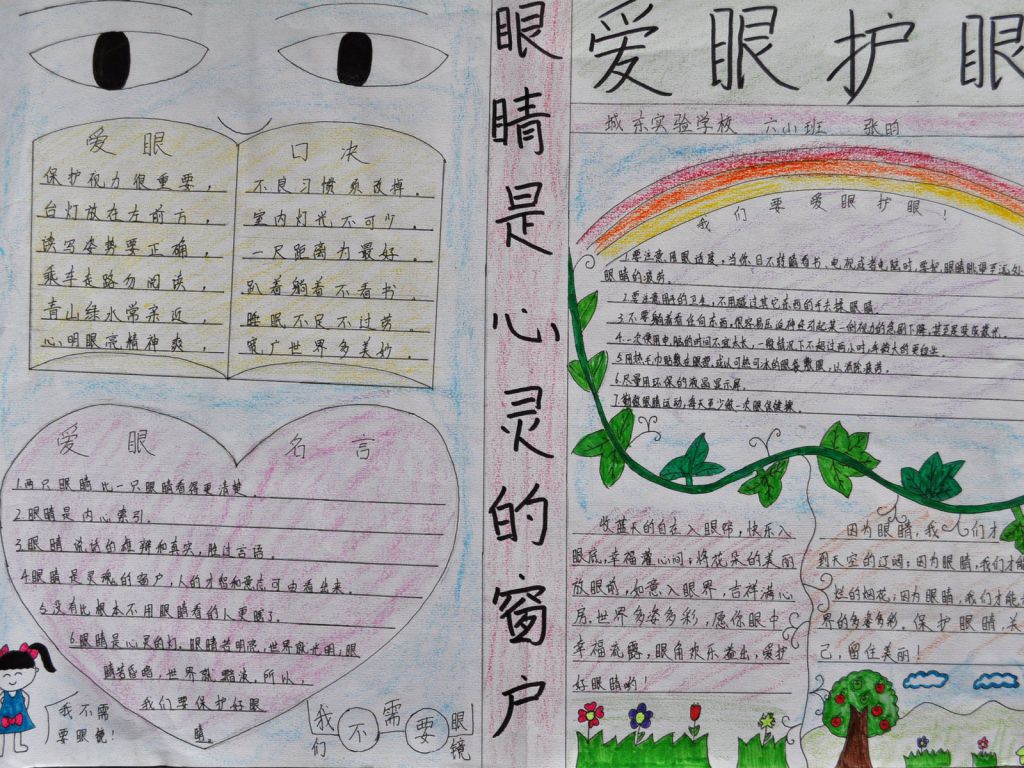 眼睛是心灵的窗户
爱眼护眼
城东实验学校 六小班 张昀
爱眼
保护视力很重要,
台灯放在左前方,
读写姿势要正确,
乘车走路勿阅读,
青山绿水常亲近,
心明眼亮精神爽,
口决
不良习惯须改掉。
室内灯光不可少。
一尺距离为最好。
趴着躺着不看书。
睡眠不足不过劳。
宽广世界多美妙。
爱眼 名言
1.两只眼睛比一只眼睛看得更清楚
2.眼睛是内心索引.
3.眼睛说话的雄辩和真实,胜过言语.
4.眼睛是灵魂的窗户,人的才智和意志可由看出来.
5.没有比根本不用眼睛看的人更瞎了.
6.眼睛是心灵的灯,眼睛若明亮,世界就光明,眼
睛若昏暗,世界就黯淡,所以,
我们要保护好眼
睛。
我不需
要眼镜!
我们不需要眼镜
我们要爱眼护眼!
1.要注意用眼适度,当你目不转睛看书、电视或者电脑时,
眼睛的疲劳.
2.要注意用手的卫生,不用碰过其它东西的手去揉眼睛.
3.不要躺着看任何东西,很容易
4.一次使用电脑的时间不宜太长,一般情况下不超过两小时,年龄大的更
5.用热毛巾贴敷在眼部,或以可热可冰的眼袋敷眼,以消除疲劳.
6.尽量用环保的液晶显示屏.
7.勤做眼睛运动,每天至少做一次眼保健操.
收蓝天的自在入眼帘,快乐入
眼底,幸福灌心间;将花朵的美丽
放眼前,如意入眼界,吉祥满心
房.世界多姿多彩,愿你眼中
幸福流露,眼角欢乐溢出,爱护
好眼睛哟!
因为眼睛,我们才
到天空的辽阔;因为眼睛,我们才能
烂的烟花;因为眼睛,我们才能
界的多姿多彩.保护眼睛,关
己,留住美丽!